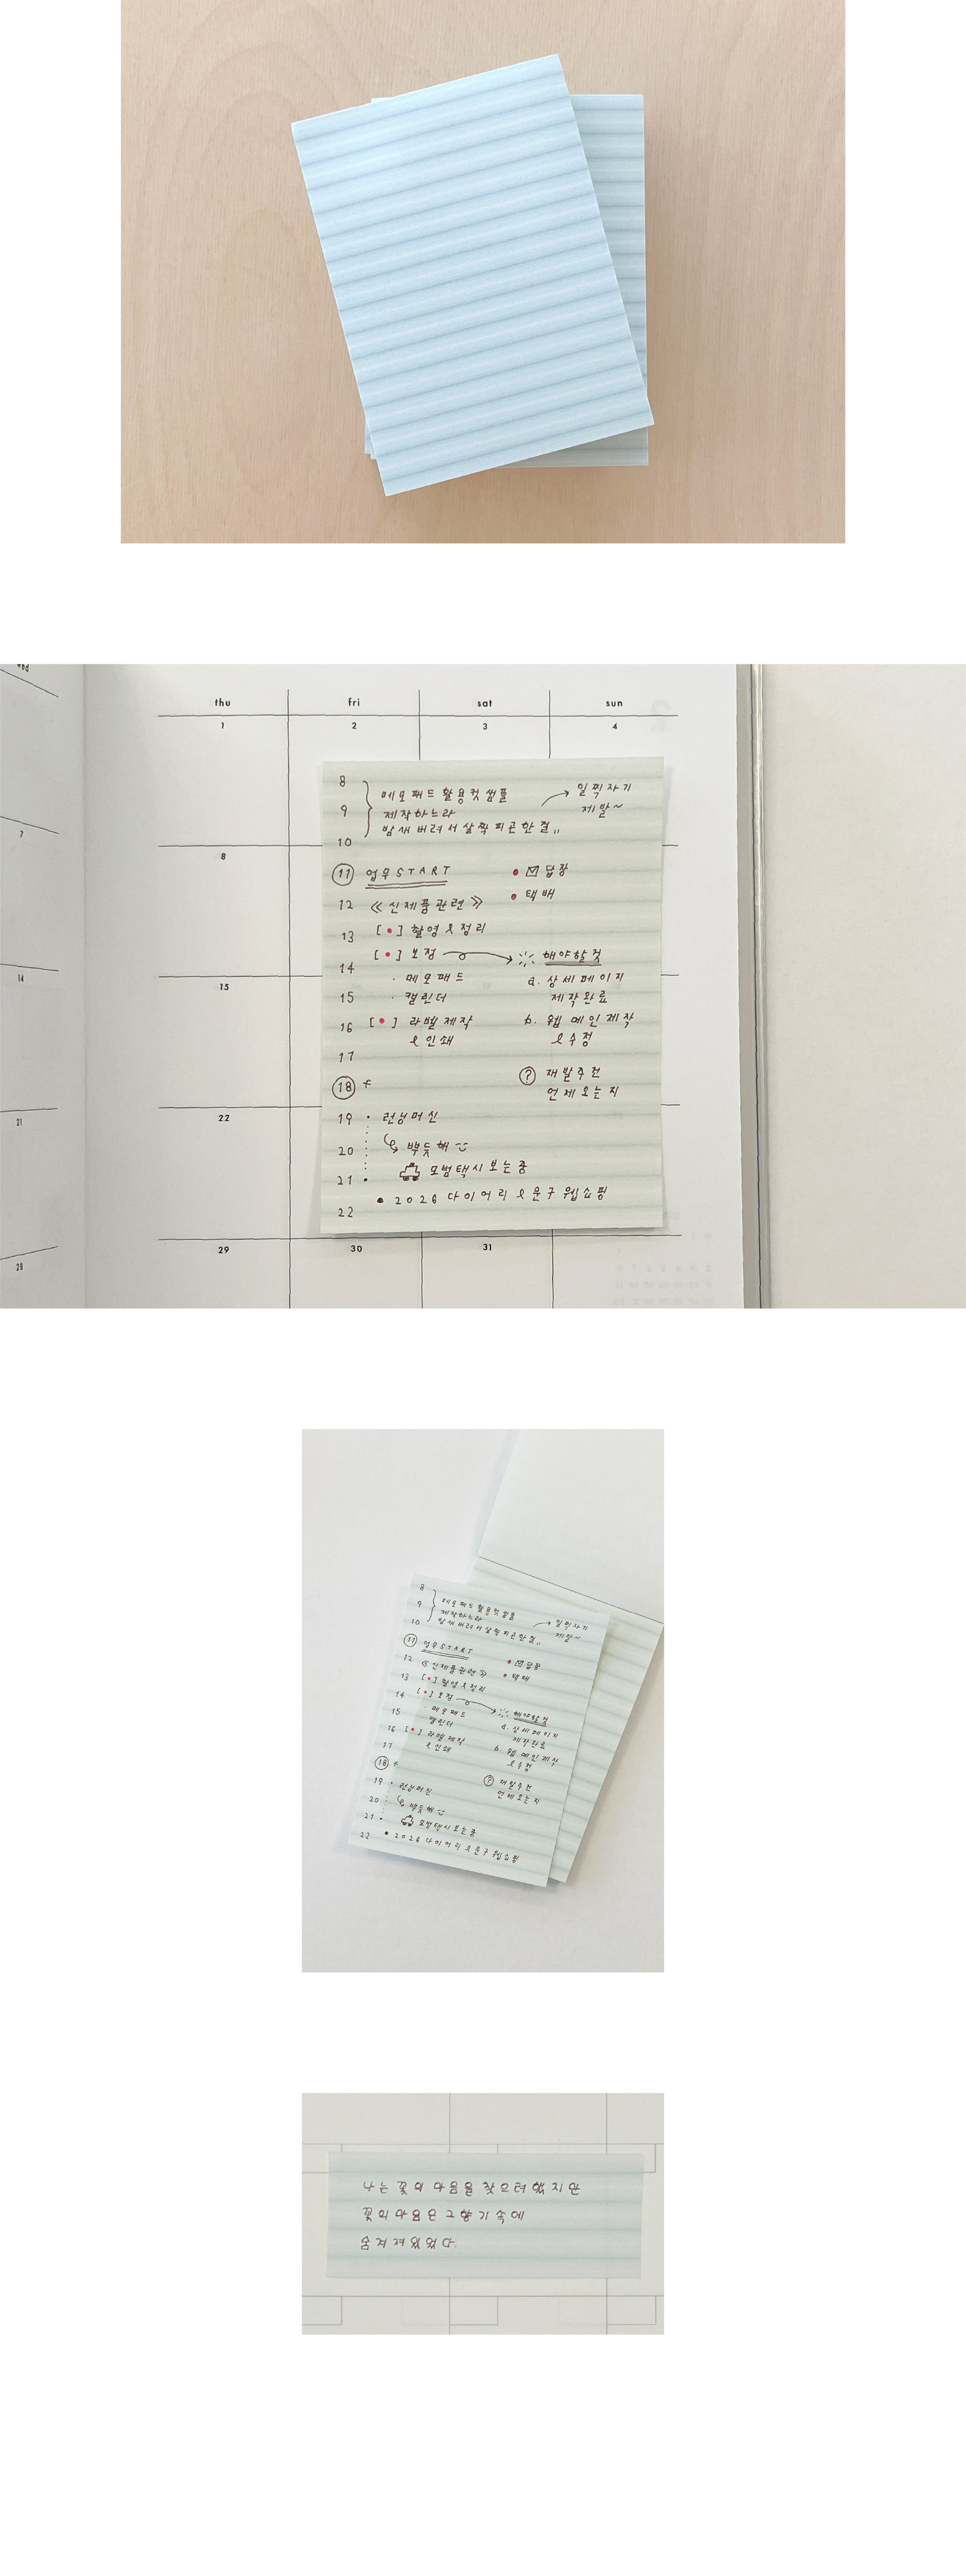 wed
thu fri sat sun
1 2 3 4
7
8
14
15
21
22
28
29 30 31
8
9
10
메모패드 활용컷 샘플
제작하느라
밤 새 버려서 살짝 피곤한 걸,,
일찍 자기
제발~
11 업무 START
12 《신제품 관련》
13 [•] 촬영 & 정리
14 [•] 보정
· 메모패드
15 · 캘린더
16 [•] 라벨 제작
& 인쇄
17
18
• 답장
• 택배
해야할 것
a. 상세페이지
제작완료
b. 웹 메인 제작
& 수정
? 재발주건
언제 오는지
19 • 런닝머신
20 뿌듯해
21 • 모범택시 보는 중
22 • 2026 다이어리 & 문구 웹쇼핑
8
9
10
메모패드 활용컷 샘플
제작하느라
밤 새 버려서 살짝 피곤한 걸,,
일찍 자기
제발~
11 업무 START
12 《신제품 관련》
13 [•] 촬영 & 정리
14 [•] 보정
15 · 메모패드
캘린더
16 [•] 라벨 제작
17 & 인쇄
18
• 답장
• 택배
해야할 것
a. 상세페이지
제작완료
b. 웹 메인 제작
& 수정
? 재발주건
언제 오는지
19 • 런닝머신
20 뿌듯해
21 • 모범택시 보는 중
22 • 2026 다이어리 & 문구 웹쇼핑
나는 꽃의 마음을 찾으려 했지만
꽃의 마음은 그 향기 속에
숨겨져 있었다.